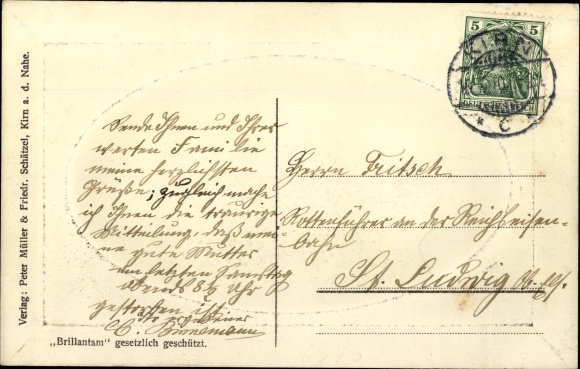 Verlag: Peter Müller & Friedr. Schätzel, Kirn a. d. Nahe.
Sende Ihnen und Ihrer
werten Familie
meine herzlichsten
Grüße; zugleich mache
ich Ihnen die traurige
Mitteilung, daß mei-
ne gute Mutter
am letzten Samstag
abends 8½ Uhr
gestorben ist.
Ihr ergebener
C.
„Brillantam" gesetzlich geschützt.
5 5
KIRN
* C *
Herrn Fritsch
Rottenführer an der Reichseisen-
bahn
St. Ludwig